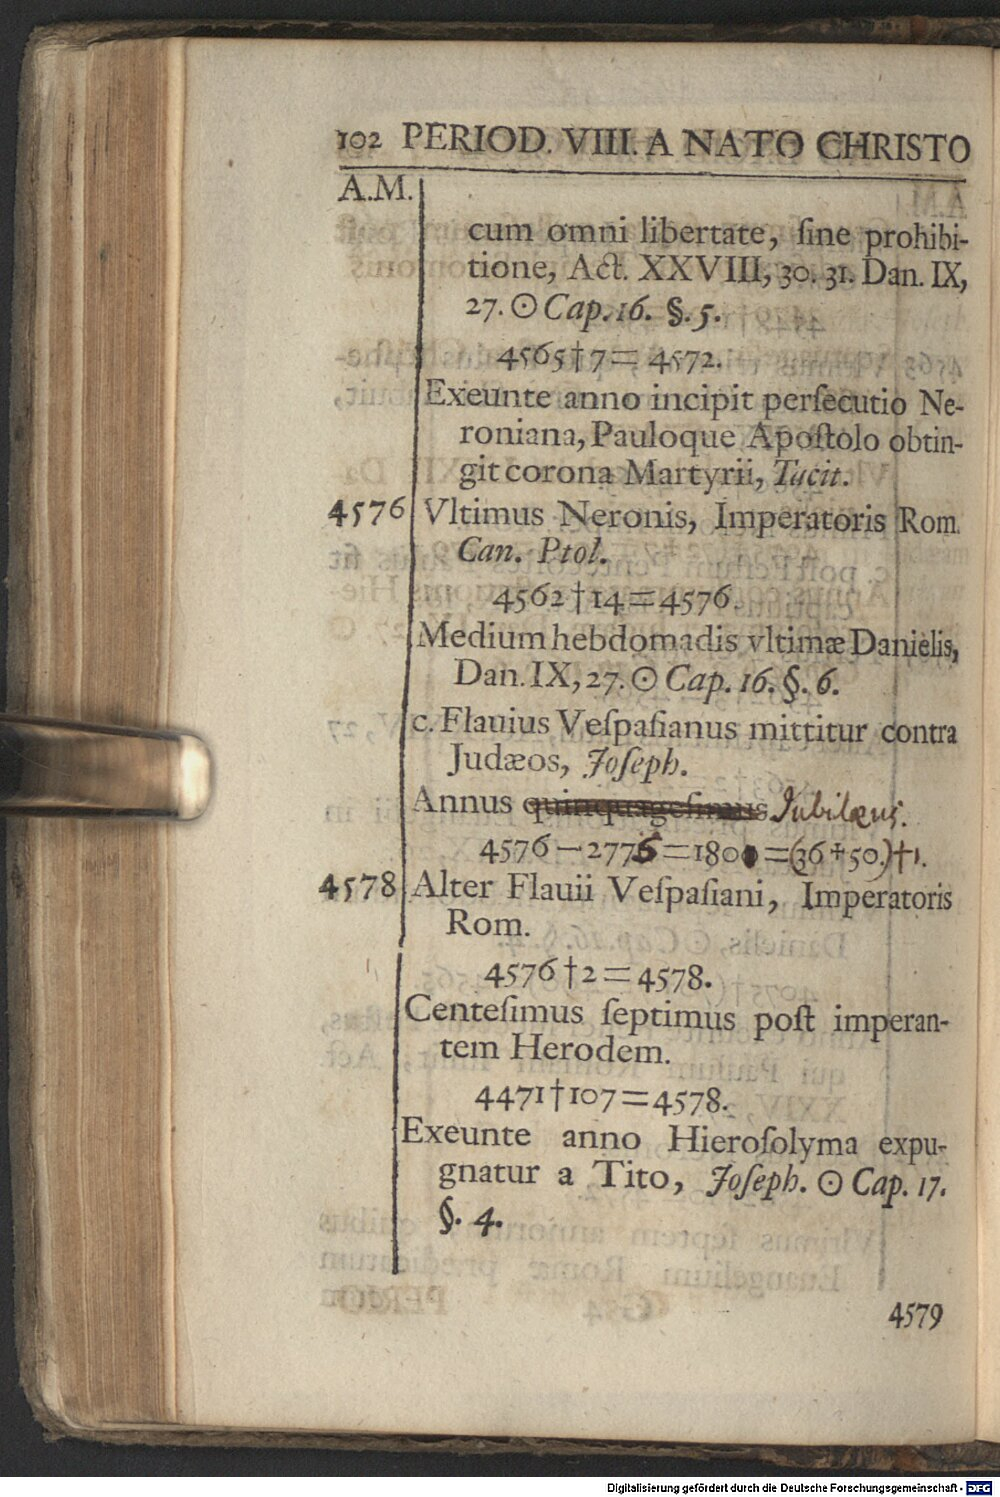 102 PERIOD. VIII. A NATO CHRISTO
A.M.
cum omni libertate, ſine prohibi-
tione, Act. XXVIII, 30. 31. Dan. IX,
27. ☉ Cap. 16. §. 5.
4565†7=4572.
Exeunte anno incipit perſecutio Ne-
roniana, Pauloque Apoſtolo obtin-
git corona Martyrii, Tacit.
4576 Vltimus Neronis, Imperatoris Rom.
Can. Ptol.
4562†14=4576.
Medium hebdomadis vltimæ Danielis,
Dan. IX, 27. ☉ Cap. 16. §. 6.
c. Flauius Veſpaſianus mittitur contra
Judæos, Joſeph.
Annus quinquageſimus Jubilæus.
4576—2776=1800=(36+50.)†1.
4578 Alter Flauii Veſpaſiani, Imperatoris
Rom.
4576†2=4578.
Centeſimus ſeptimus poſt imperan-
tem Herodem.
4471†107=4578.
Exeunte anno Hieroſolyma expu-
gnatur a Tito, Joſeph. ☉ Cap. 17.
§. 4.
4579
Digitalisierung gefördert durch die Deutsche Forschungsgemeinschaft - DFG